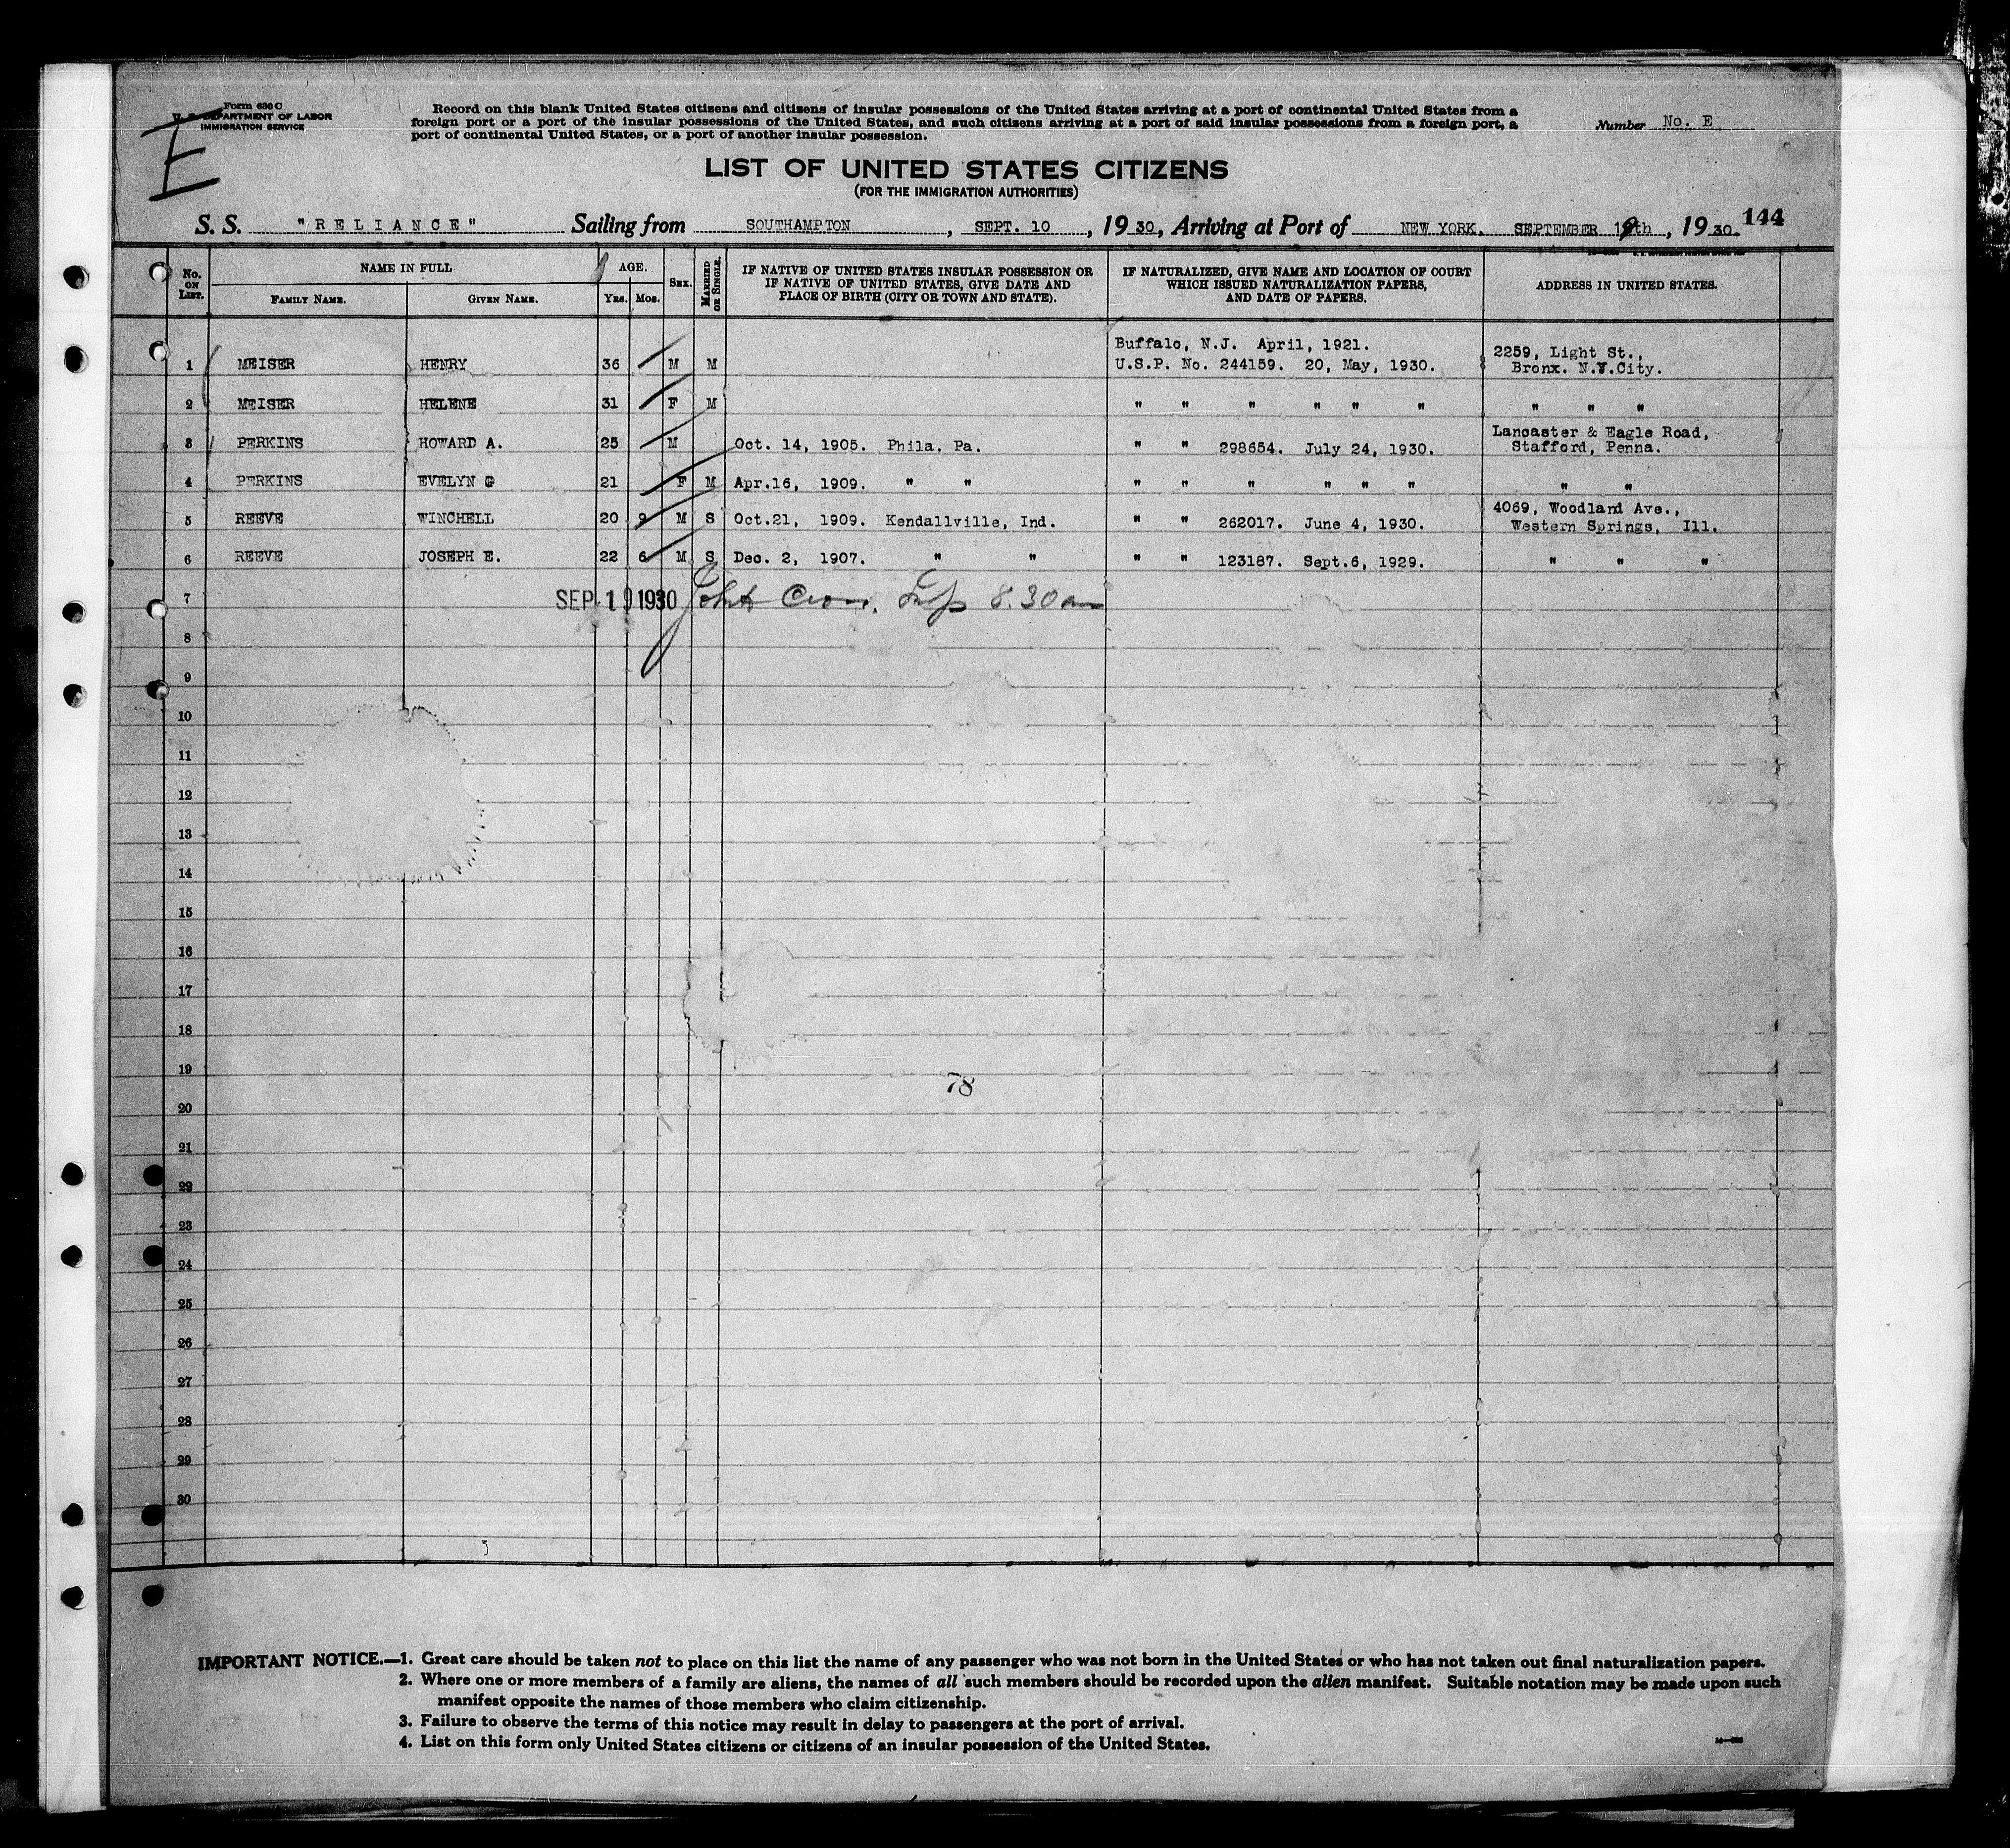 Form 630 C
U. S. DEPARTMENT OF LABOR
IMMIGRATION SERVICE
E
Record on this blank United States citizens and citizens of insular possessions of the United States arriving at a port of continental United States from a
foreign port or a port of the insular possessions of the United States, and such citizens arriving at a port of said insular possessions from a foreign port, a
port of continental United States, or a port of another insular possession.
Number No. E
LIST OF UNITED STATES CITIZENS
(FOR THE IMMIGRATION AUTHORITIES)
S. S. "RELIANCE" Sailing from SOUTHAMPTON, SEPT. 10, 1930, Arriving at Port of NEW YORK, SEPTEMBER 19th, 1930. 144
No. ON LIST. NAME IN FULL FAMILY NAME. GIVEN NAME. AGE. Yrs. Mos. SEX. MARRIED OR SINGLE. IF NATIVE OF UNITED STATES INSULAR POSSESSION OR IF NATIVE OF UNITED STATES, GIVE DATE AND PLACE OF BIRTH (CITY OR TOWN AND STATE). IF NATURALIZED, GIVE NAME AND LOCATION OF COURT WHICH ISSUED NATURALIZATION PAPERS, AND DATE OF PAPERS. ADDRESS IN UNITED STATES.
Buffalo, N.J. April, 1921. 2259, Light St.,
1 MEISER HENRY 36 M M U.S.P. No. 244159. 20, May, 1930. Bronx. N.Y.City.
2 MEISER HELENE 31 F M " " " " " " " " "
Lancaster & Eagle Road,
3 PERKINS HOWARD A. 25 M Oct. 14, 1905. Phila. Pa. " " 298654. July 24, 1930. Stafford, Penna.
4 PERKINS EVELYN G 21 F M Apr.16, 1909. " " " " " " " " " "
4069, Woodland Ave.,
5 REEVE WINCHELL 20 9 M S Oct.21, 1909. Kendallville, Ind. " " 262017. June 4, 1930. Western Springs, Ill.
6 REEVE JOSEPH E. 22 6 M S Dec. 2, 1907. " " " " 123187. Sept.6, 1929. " " "
7 SEP 19 1930 8.30 am
8
9
10
11
12
13
14
15
16
17
18
19
78
20
21
22
23
24
25
26
27
28
29
30
IMPORTANT NOTICE.—1. Great care should be taken not to place on this list the name of any passenger who was not born in the United States or who has not taken out final naturalization papers.
2. Where one or more members of a family are aliens, the names of all such members should be recorded upon the alien manifest. Suitable notation may be made upon such
manifest opposite the names of those members who claim citizenship.
3. Failure to observe the terms of this notice may result in delay to passengers at the port of arrival.
4. List on this form only United States citizens or citizens of an insular possession of the United States.